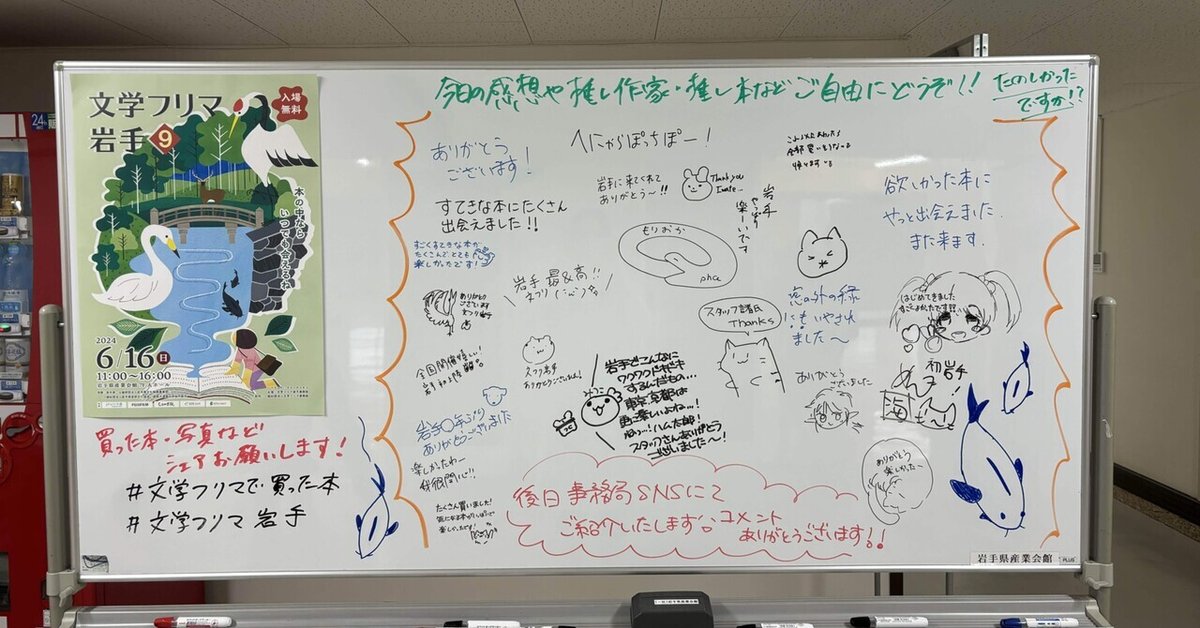 文学フリマ
岩手9
入場
無料
本の中なら
いつでも会えるね
2024
6/16(日)
11:00~16:00
買った本・写真など
シェアお願いします!
#文学フリマで買った本
#文学フリマ岩手
今日の感想や推し作家・推し本などご自由にどうぞ!!
たのしかった
ですか!?
ありがとう
ございます!
へにゃらぽっちぽー!
すてきな本にたくさん
出会えました!!
すごくすてきな本が
たくさんでとても
楽しかったです!
岩手に来てくれて
ありがとう〜!!
Thank you
Iwate...
岩手
楽しいです
もりおか
pha
欲しかった本に
やっと出会えました.
また来ます.
岩手最&高!!
ありがとう
ござい
スタッフ皆着氏
Thanks
窓の外の緑
にもいやされ
ました〜
はじめてきました
初岩手
全国開催嬉しい!
ありがとう
ございました
岩手でこんなに
ワクワクドキドキ
するんだもの…
東京、京都は
もっと楽しいよね…!
ねっ!ハム太郎!
スタッフさんありがとう
ございました〜!
岩手〇年ぶり
ありがとうございました
楽しかったわー
たくさん買いました!
楽しかったです!
ありがとう
楽しかったー
後日事務局SNSにて
ご紹介いたします。コメント
ありがとうございます!!
岩手県産業会館
PLUS